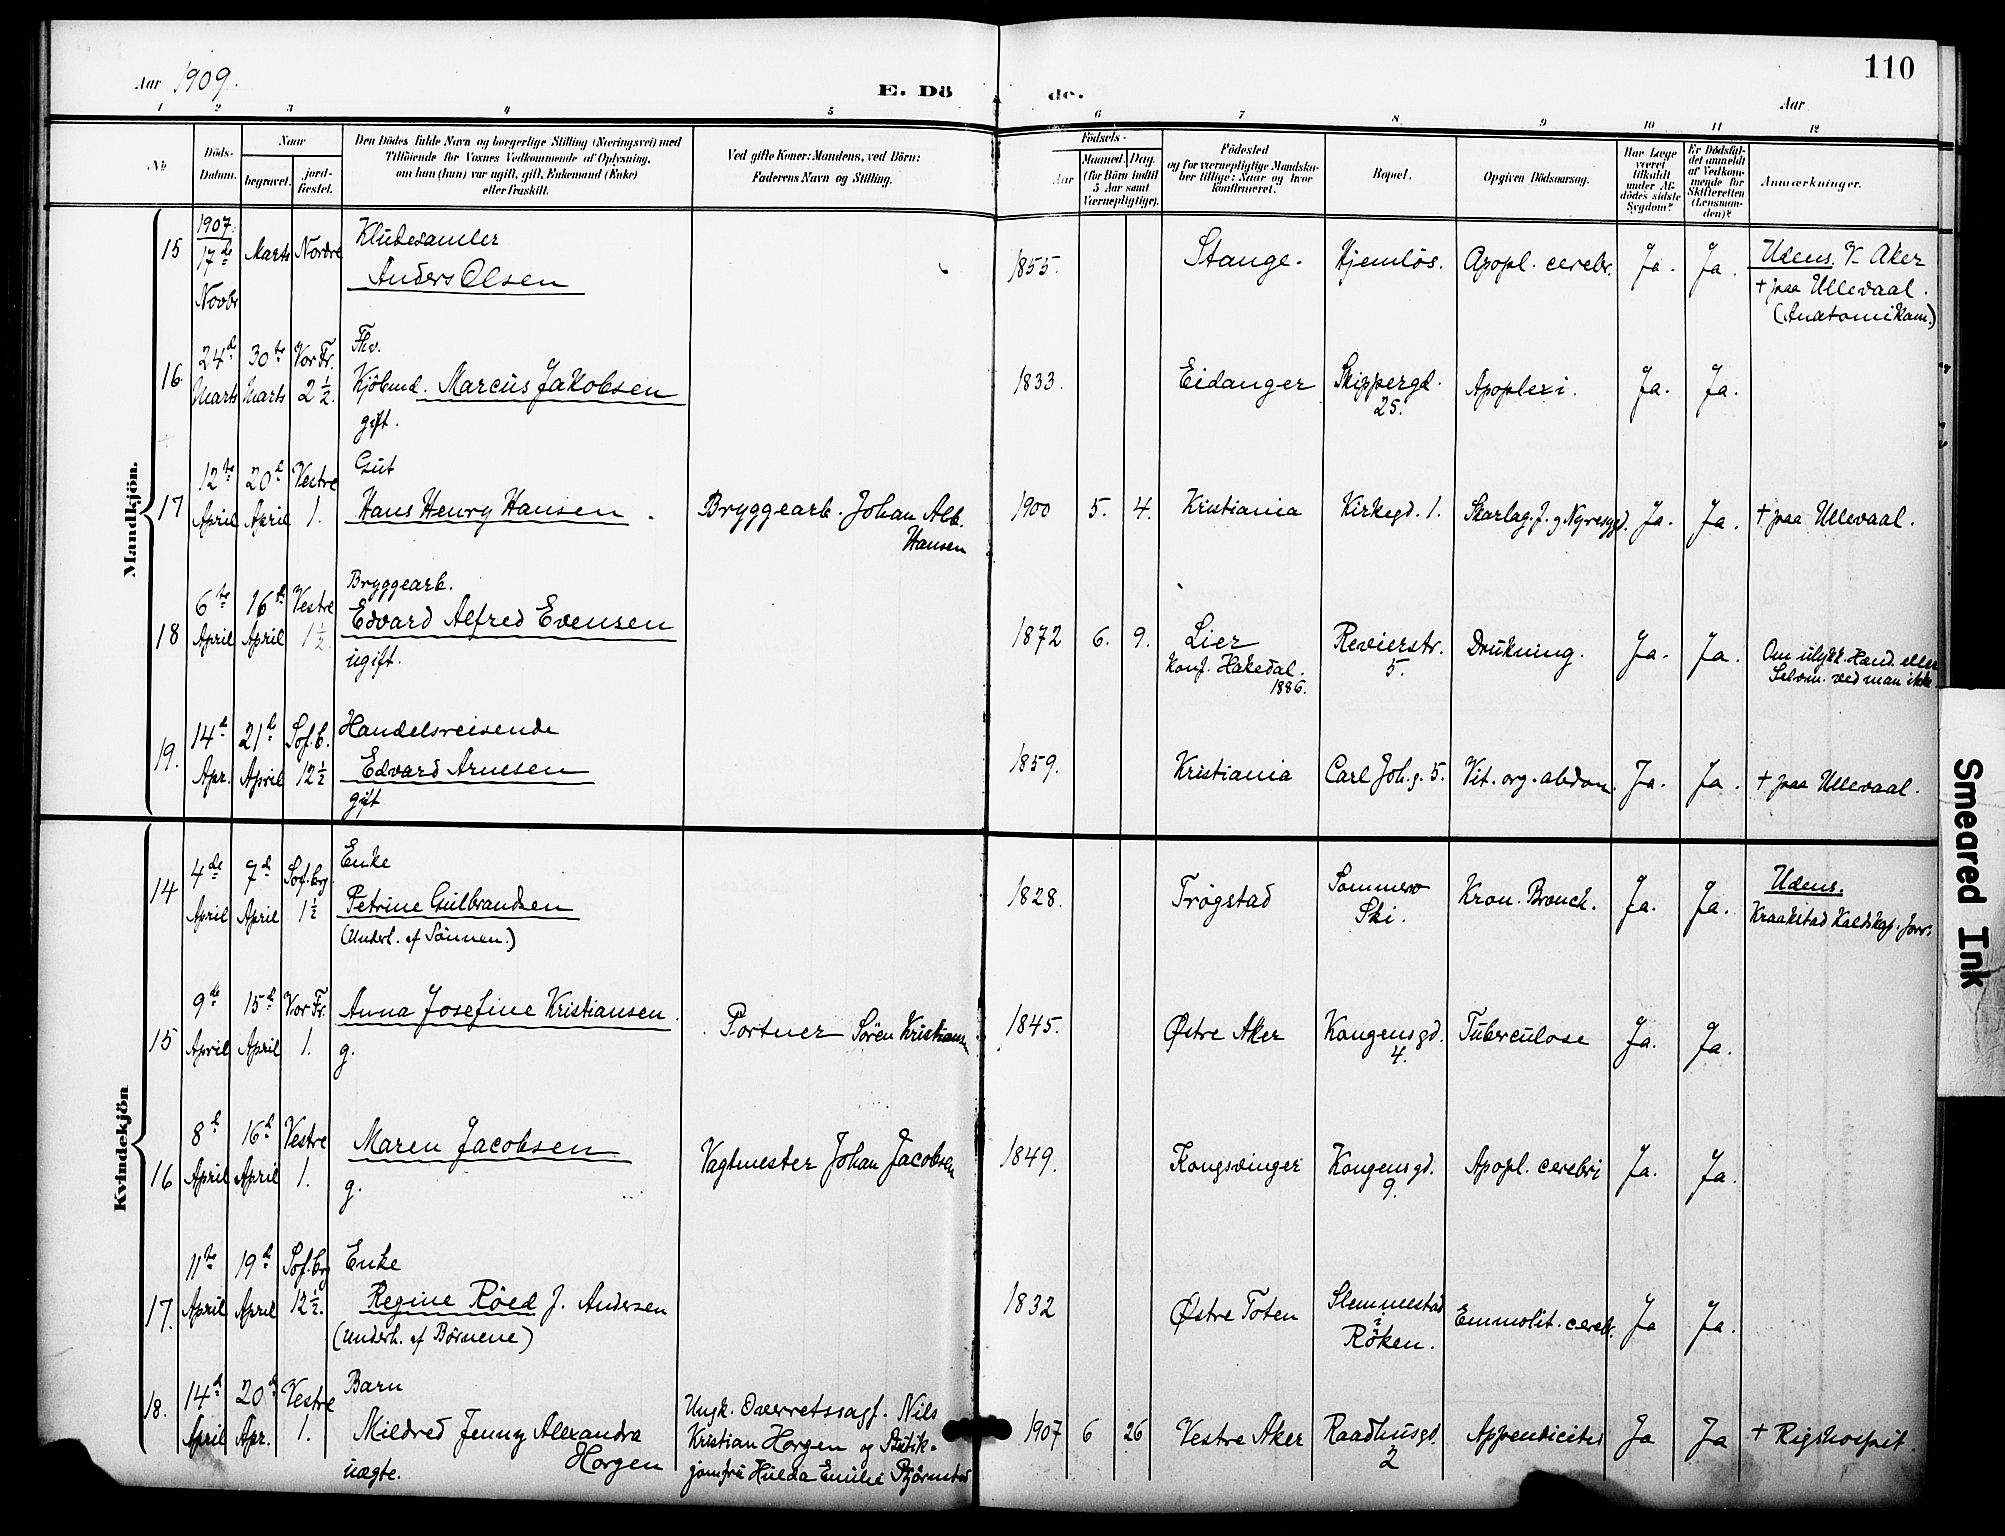 Aar 1909.
E. Dö de.
110
Aar
1 2 3 4 5 6 7 8 9 10 11 12
No
Döds-Datum.
Naar
begravet.
jord-fæstet.
Den Dödes fulde Navn og borgerlige Stilling (Næringsvei) med
Tilföiende for Voxnes Vedkommende af Oplysning,
om han (hun) var ugift, gift, Enkemand (Enke)
eller fraskilt.
Ved gifte Koner: Mandens, ved Börn:
Faderens Navn og Stilling.
Födsels-
Aar
Maaned. Dag.
(for Börn indtil
5 Aar samt
Værnepligtige).
Födested
og for værnepligtige Mandska-
ber tillige: Naar og hvor
konfirmeret.
Bopæl.
Opgiven Dödsaarsag.
Har Læge
været
tilkaldt
under Af-
dödes sidste
Sygdom?
Er Dödsfal-
det anmeldt
af Vedkom-
mende for
Skifteretten
(Lensman-
den)?
Anmærkninger.
Mandkjön.
15 1907. 17de Novbr Marts Nordre Kludesamler
Anders Olsen
1855. Stange. Hjemløs. Apopl. cerebr. Ja. Ja. Udens. V. Aker
† paa Ullevaal.
(Anatomikam.)
16. 24de Marts 30te Marts Vor Fr. 2 1/2. Fhv.
Kjöbmd. Marcus Jakobsen
gift.
1833. Eidanger Skippergd. 25. Apoplexi. Ja. Ja.
17 12te April 20d April Vestre 1. Gut
Hans Henry Hansen.
Bryggearb. Johan Alb.
Hansen
1900 5. 4. Kristiania Kirkegd. 1. Skarlag. f. og Nyresygd. Ja. Ja. † paa Ullevaal.
18 6te April 16d April Vestre 1 1/2. Bryggearb.
Edvard Alfred Evensen
ugift.
1872 6. 9. Lier
Konf. Hakedal.
1886.
Revierstr. 5. Drukning. Ja. Ja. Om ulykk. Hænd. eller
Selvm. ved man ikke.
19. 14d Apr. 21d April Sof. b. 12 1/2 Handelsreisende
Edvard Arnesen
gift
1859. Kristiania Carl Joh. g. 5. Vit. org. abdom. Ja. Ja. † paa Ullevaal.
Kvindekjön
14 4de April 7d April Sof. brg. 1 1/2 Enke
Petrine Gulbrandsen
(Underh. af Sönnen.)
1828. Trøgstad Sommero
Ski.
Kron. Bronch. Ja. Ja. Udens.
Kraakstad
15 9de April 15d April Vor Fr. 1. Anna Josefine Kristiansen.
g.
Portner Sören Kristiansen
1845. Østre Aker Kongensgd. 4. Tuberculose Ja. Ja.
16 8d April 16d April Vestre 1. Maren Jacobsen
g.
Vagtmester Johan Jacobsen
1849. Kongsvinger Kongensgd. 9. Apopl. cerebri Ja. Ja.
17. 11te April 19d April Sof. brg 12 1/2. Enke
Regine Röed f. Andersen
(Underh. af Börnene)
1832 Østre Toten Slemmestad
i
Röken.
Emmolit. cerebr. Ja Ja.
18. 14d April 20d Apr. Vestre 1. Barn
Mildred Jenny Alexandra
Horgen
uægte.
Ungk. Overretssagf. Nils
Kristian Horgen og Butik-
jomfru Hulda Emilie Björnstad
1907 6 26 Vestre Aker Raadhusgd. 2 Appendicites Ja Ja † Rigshospit.
Smeared Ink